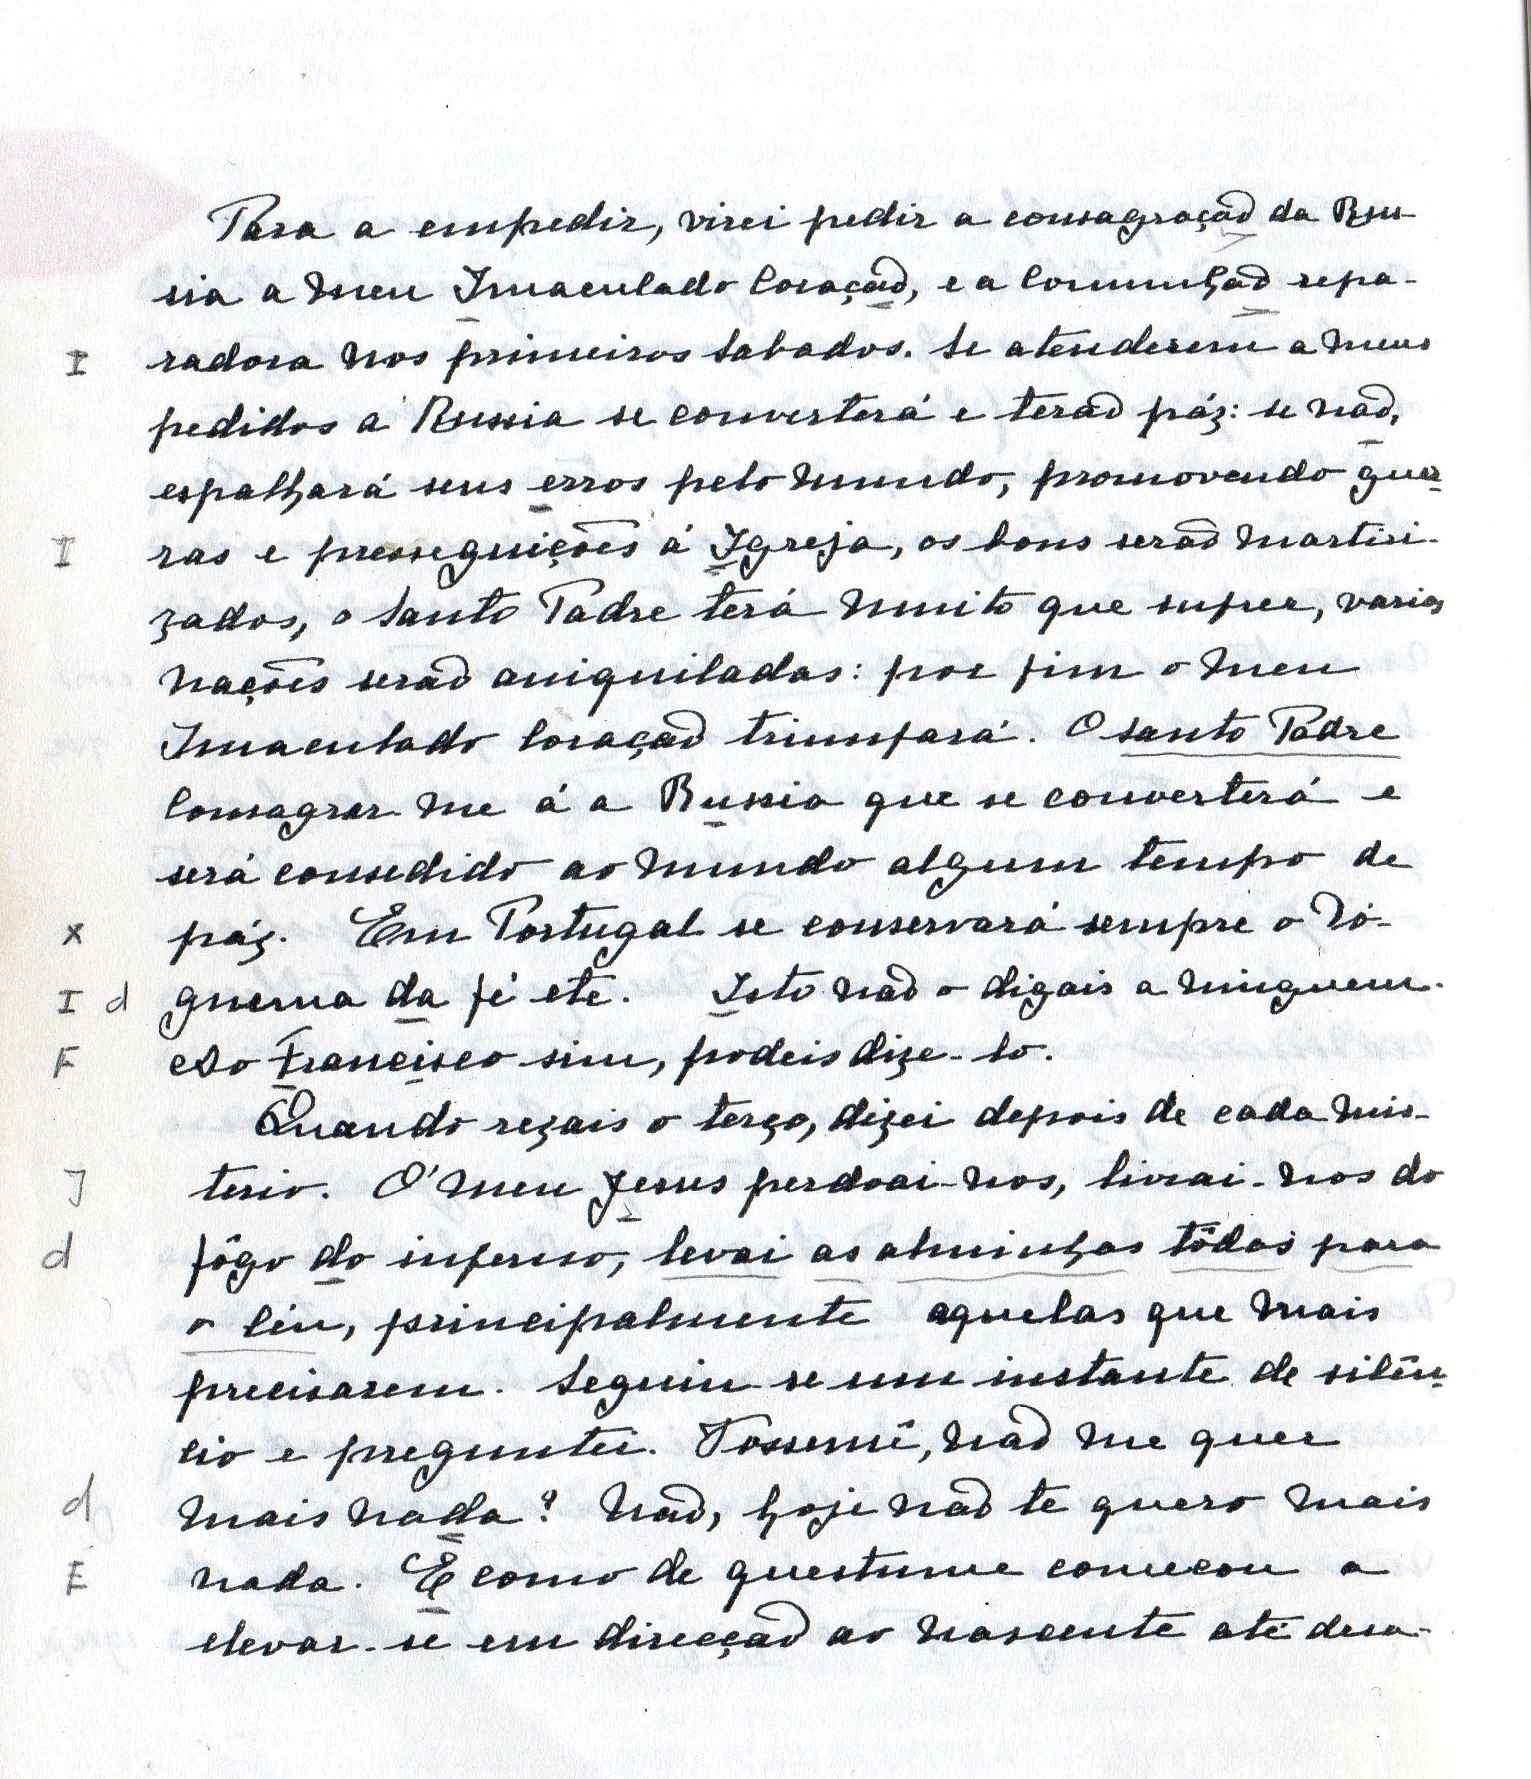 Para a empedir, virei pedir a consagração da Rus-
sia a meu Imaculado Coração, e a Comunhão repa-
I radora nos primeiros sabados. Se atenderem a meus
pedidos a Russia se converterá e terão páz: se não,
espalhará seus erros pelo mundo, promovendo guer
I ras e presseguições á Igreja, os bons serão martiri-
zados, o Santo Padre terá muito que sufrer, varias
nações serão aniquiladas: por fim o meu
Imaculado Coração triumfará. O santo Padre
Consagrar-me á a Russia que se converterá e
será consedido ao mundo algum tempo de
x páz. Em Portugal se conservará sempre o
I d da fé etc. Isto não o digais a ninguem.
F Ao Francisco sim, podeis dize-lo.
Quando rezais o terço, dizei depois de cada mis-
J terio. O' meu Jesus perdoai-nos, livrai-nos do
d fôgo do inferno, levai as alminhas tôdas para
o Céu, principalmente aquelas que mais
precisarem. Seguiu-se um instante de silên
cio e preguntei. Vossemê, não me quer
d mais nada? Não, hoje não te quero mais
E nada. E como de questume começou a
elevar-se em direcção ao nascente até desa-